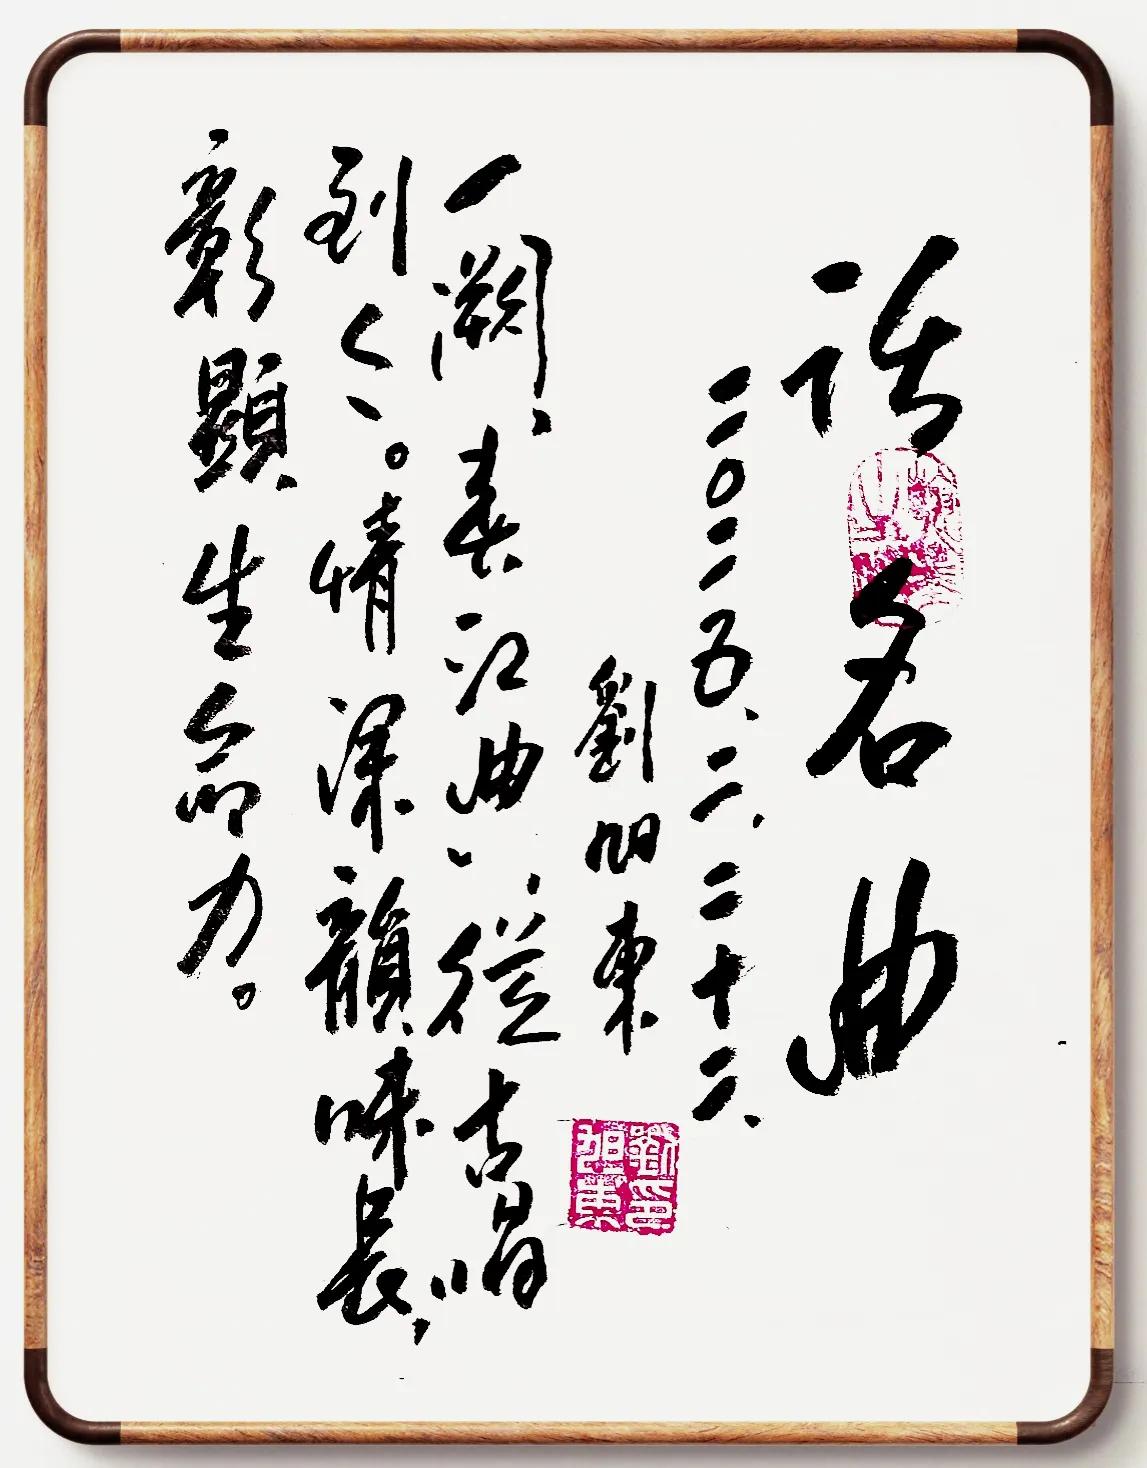 话名曲
二〇二五、二、二十二、
劉旭東
劉印
旭東
一阕、春江曲、，從古唱
到今。情深韻味長，
彰顯生命力。